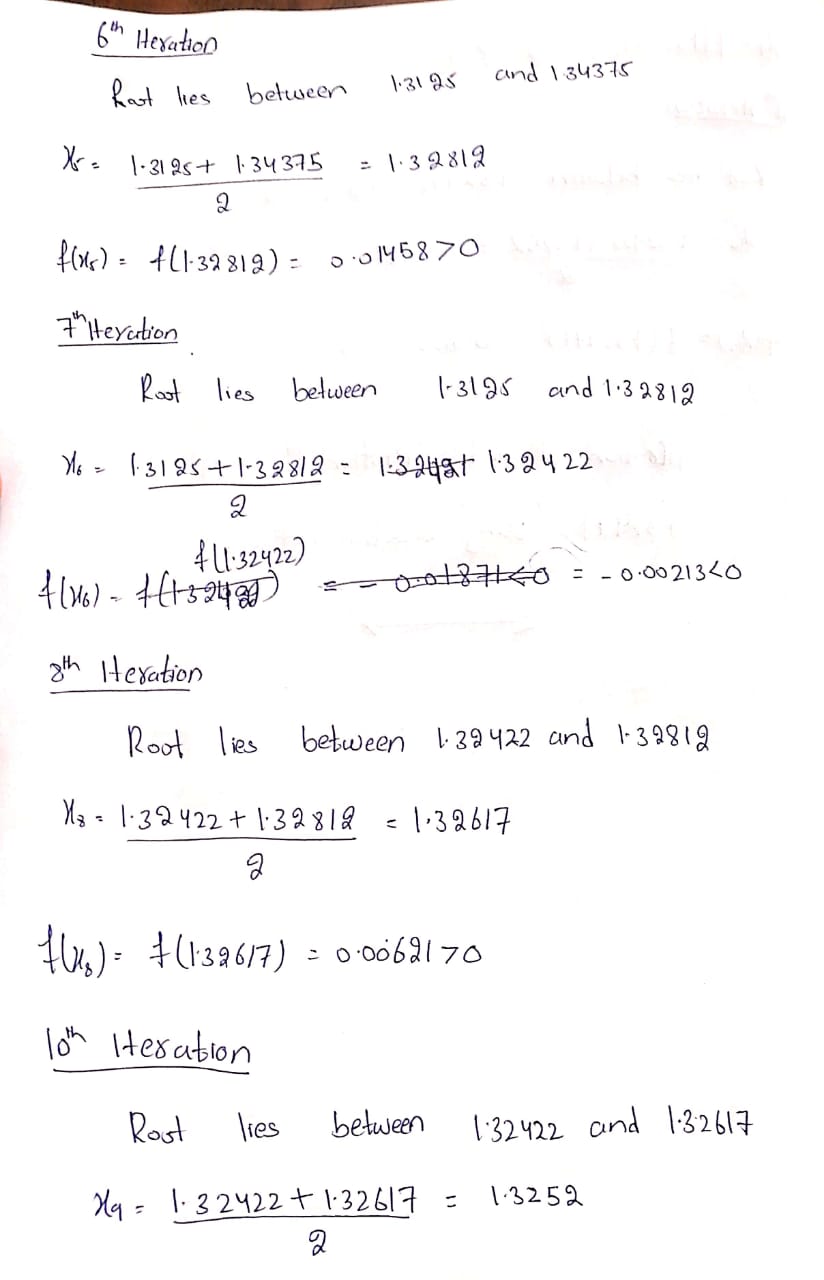 6th Iteration
Root lies between 1.3125 and 1.34375
x5 = 1.3125 + 1.34375 / 2 = 1.32812
f(x5) = f(1.32812) = 0.01458 > 0
7th Iteration
Root lies between 1.3125 and 1.32812
x6 = 1.3125 + 1.32812 / 2 = 1.32422
f(x6) = f(1.32422) = -0.00213 < 0
8th Iteration
Root lies between 1.32422 and 1.32812
x8 = 1.32422 + 1.32812 / 2 = 1.32617
f(x8) = f(1.32617) = 0.00621 > 0
10th Iteration
Root lies between 1.32422 and 1.32617
x9 = 1.32422 + 1.32617 / 2 = 1.3252